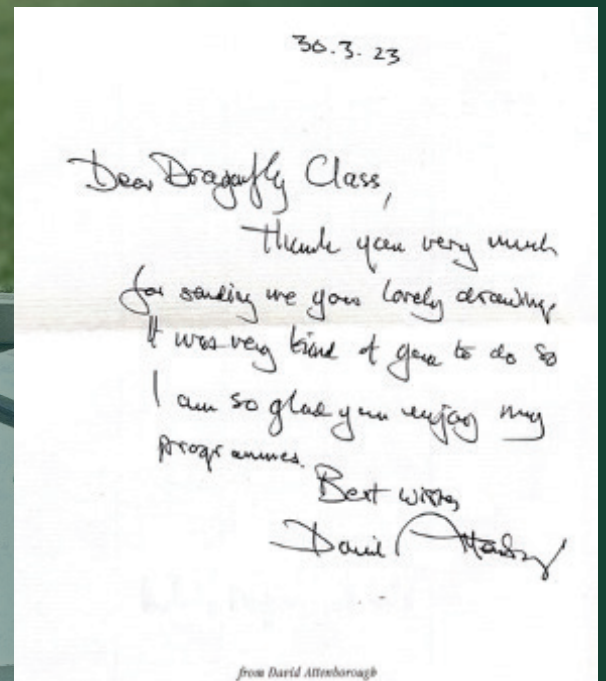 30.3.23
Dear Dragonfly Class,
Thank you very much
for sending me your lovely drawings
It was very kind of you to do so
I am so glad you enjoy my
programmes.
Best wishes
David Attenborough
from David Attenborough